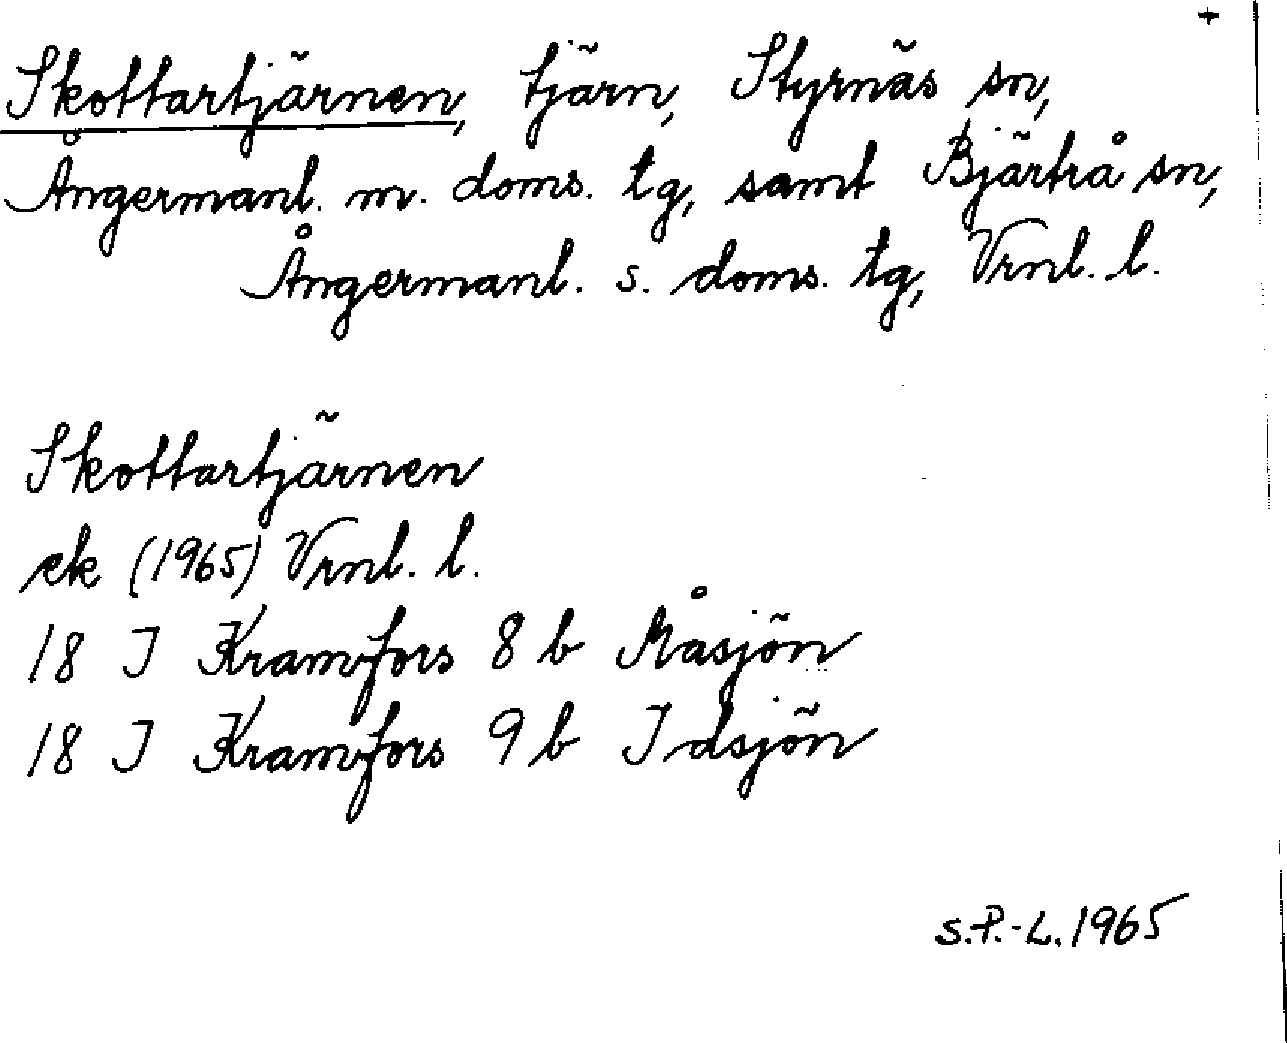 +
Skottartjärnen, tjärn, Styrnäs sn,
Ångermanl. m. doms. tg, samt Bjärtrå sn,
Ångermanl. s. doms. tg, Vrnl. l.
Skottartjärnen
ek (1965) Vrnl. l.
18 I Kramfors 8 b Måsjön
18 I Kramfors 9 b Idsjön
S.P.-L. 1965